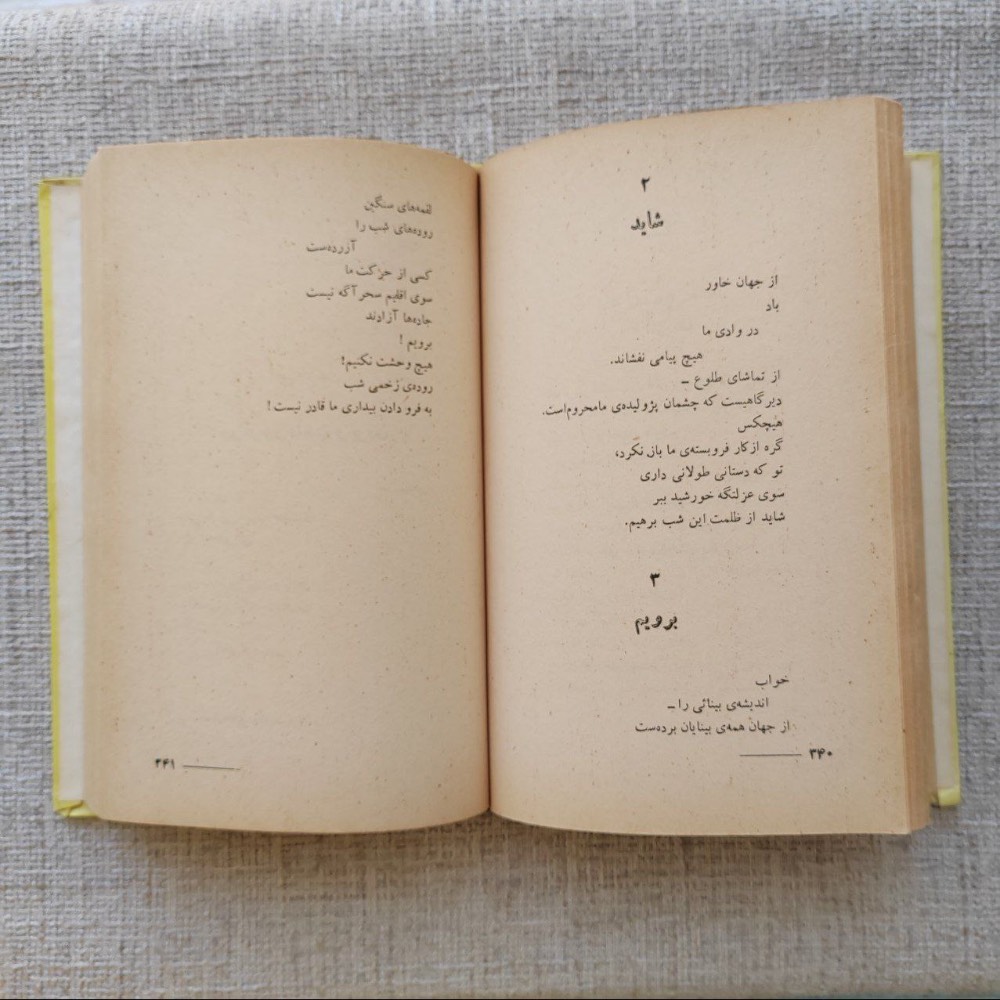 ۲
شاید
از جهان خاور
باد
در وادی ما
هیچ پیامی نفشاند.
از تماشای طلوع ـ
دیرگاهیست که چشمان پژولیده‌ی مامحروم‌است.
هیچکس
گره ازکار فروبسته‌ی ما باز نکرد،
تو که دستانی طولانی داری
سوی عزلتگه خورشید ببر
شاید از ظلمت این شب برهیم.
۳
برویم
خواب
اندیشه‌ی بینائی را ـ
از جهان همه‌ی بینایان برده‌ست
۳۴۰
لقمه‌های سنگین
روده‌های شب را
آزرده‌ست
کسی از حرکت ما
سوی اقلیم سحر آگه نیست
جاده‌ها آزادند
برویم !
هیچ وحشت نکنیم!
روده‌ی زخمی شب
به فرو دادن بیداری ما قادر نیست !
۳۴۱